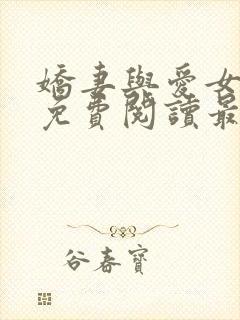 嬌妻與愛女
免費閱讀最
谷春寶